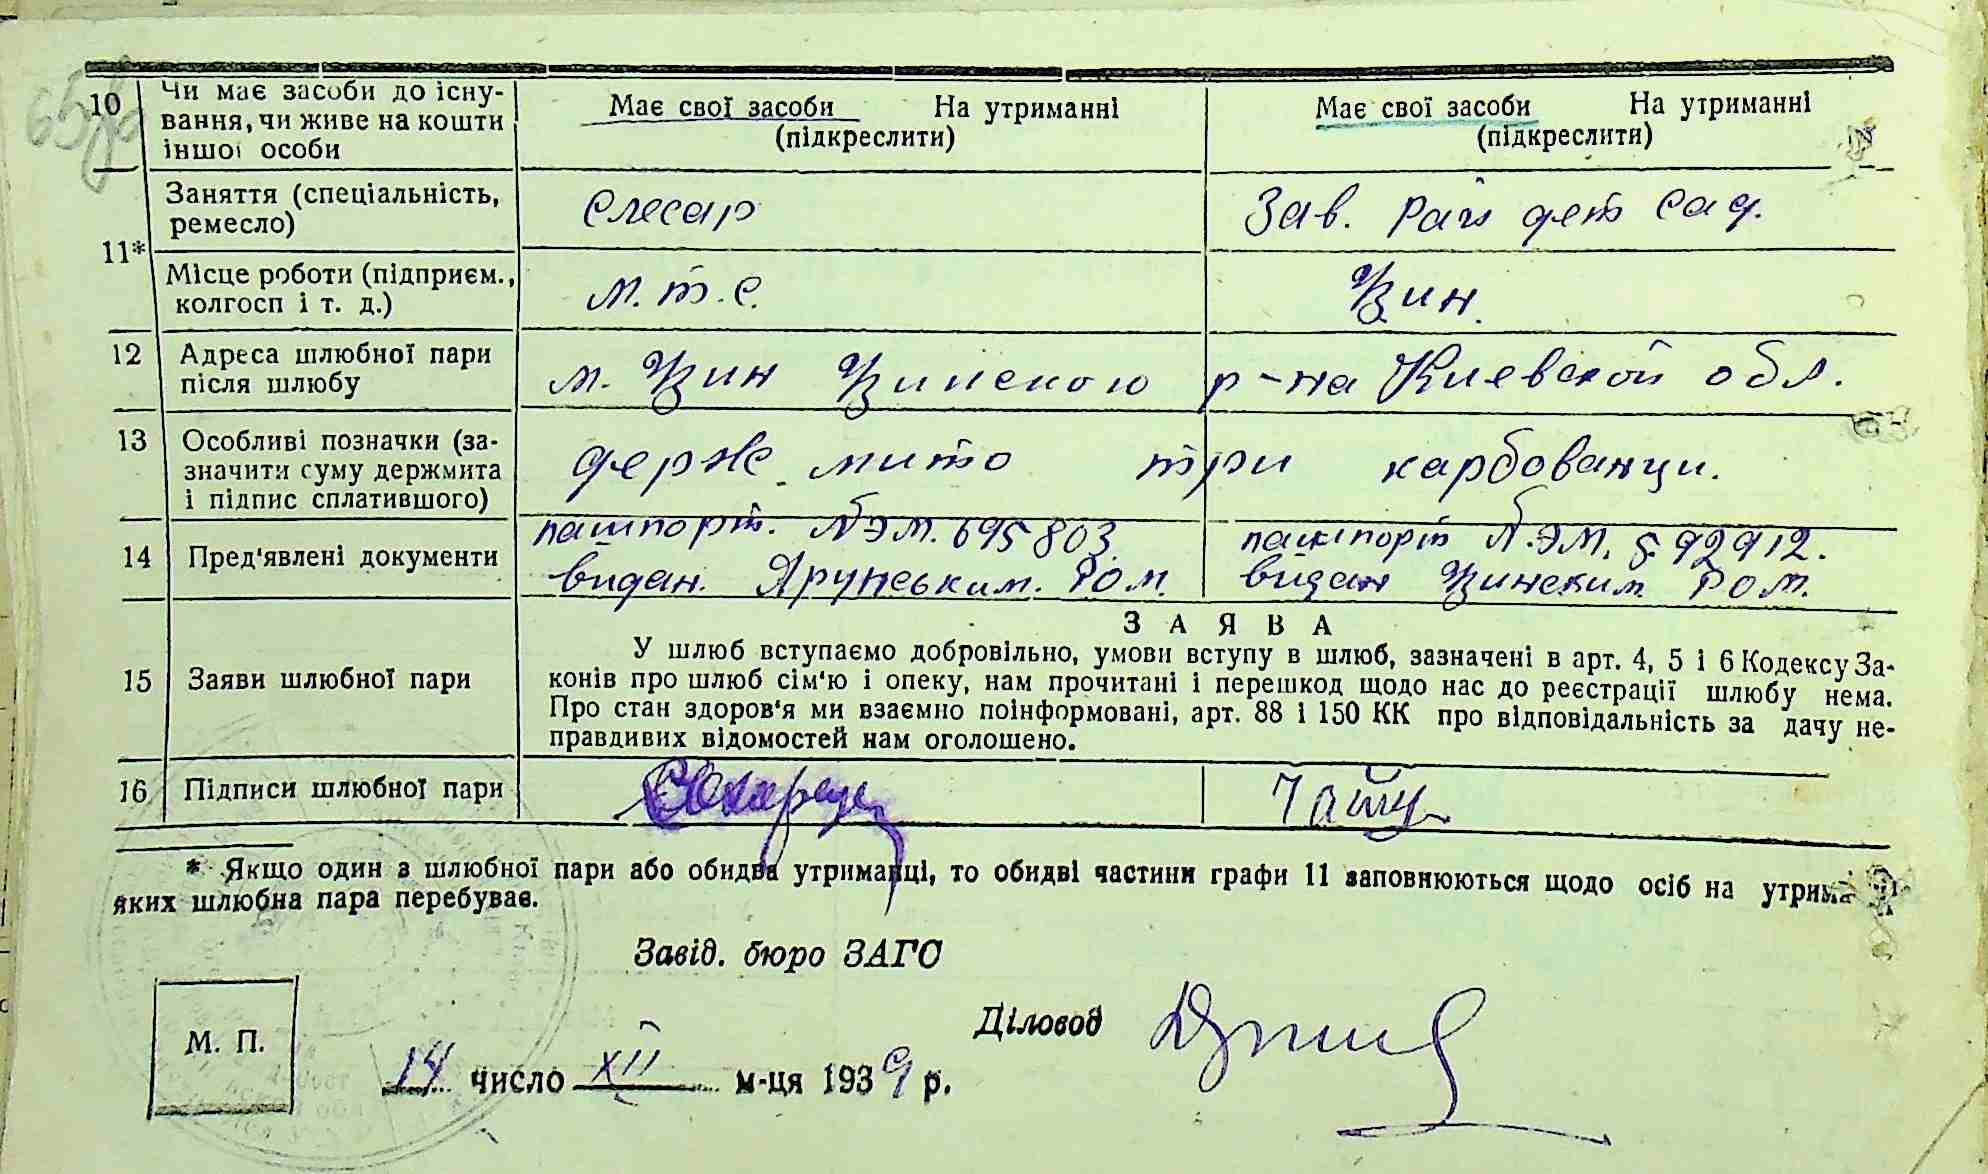 10 Чи має засоби до існу-
вання, чи живе на кошти
іншої особи
Має свої засоби На утриманні
(підкреслити)
Має свої засоби На утриманні
(підкреслити)
11*
Заняття (спеціальність,
ремесло)
слесар
Зав. Рай дет сад.
Місце роботи (підприєм.,
колгосп і т. д.)
М.т.с.
Узин.
12 Адреса шлюбної пари
після шлюбу
м. Узин Узинского р-на Киевской обл.
13 Особливі позначки (за-
значити суму держмита
і підпис сплатившого)
держ. мито три карбованци.
14 Пред'явлені документи
пашпорт. № ЭМ. 695803.
видан. Ярунським. РОМ.
пашпорт № ЭМ. 592912.
видан Узинским РОМ.
15 Заяви шлюбної пари
ЗАЯВА
У шлюб вступаємо добровільно, умови вступу в шлюб, зазначені в арт. 4, 5 і 6 Кодексу За-
конів про шлюб сім'ю і опеку, нам прочитані і перешкод щодо нас до реєстрації шлюбу нема.
Про стан здоров'я ми взаємно поінформовані, арт. 88 і 150 КК про відповідальність за дачу не-
правдивих відомостей нам оголошено.
16 Підписи шлюбної пари
* Якщо один з шлюбної пари або обидва утриманці, то обидві частини графи 11 заповнюються щодо осіб на
яких шлюбна пара перебуває.
Завід. бюро ЗАГС
Діловод
М. П.
14 число XII м-ця 1939 р.